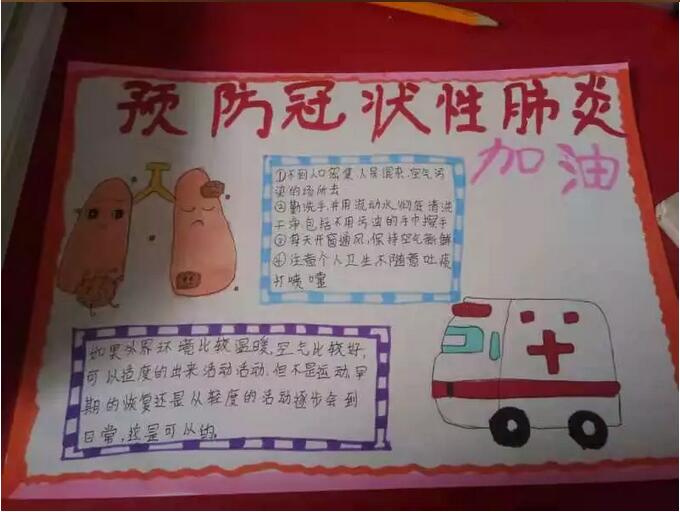 预防冠状性肺炎
加油
①不到人口密集、人员混杂、空气污
染的场所去
②勤洗手、并用流动水、彻底清洗
干净包括不用污浊的手巾擦手
③每天开窗通风,保持空气新鲜
④注意个人卫生不随意吐痰
打喷嚏
如果外界环境比较温暖,空气比较好,
可以适度的出来活动活动,但不是运动,早
期的恢复还是从轻度的活动逐步会到
日常,这是可以的。